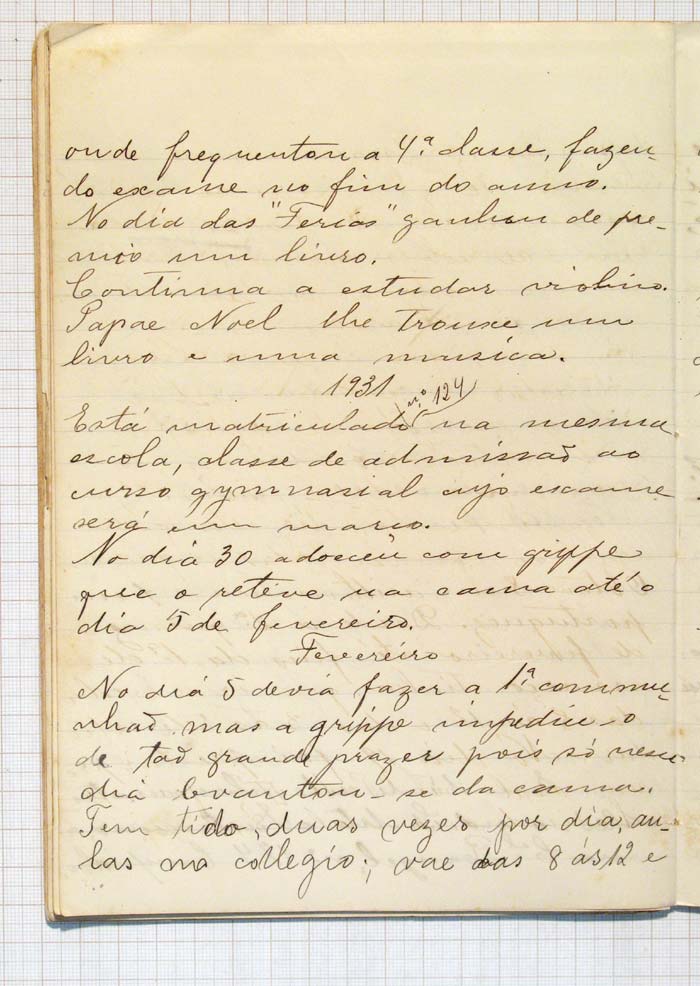 onde frequentou a 4ª classe, fazen-
do exame no fim do anno.
No dia das "Ferias" ganhou de pre-
mio um livro.
Continua a estudar violino.
Papae Noel lhe trouxe um
livro e uma musica.
1931
nº 124
Está matriculado na mesma
escola, classe de admissaõ ao
curso gymnasial cujo exame
será em março.
No dia 30 adoeceu com grippe
que o reteve na cama até o
dia 5 de fevereiro.
Fevereiro
No dia 5 devia fazer a 1ª commu-
nhaõ mas a grippe impediu-o
de taõ grande prazer pois só nesse
dia levantou-se da cama.
Tem tido, duas vezes por dia, au-
las no collegio; vae das 8 ás 12 e